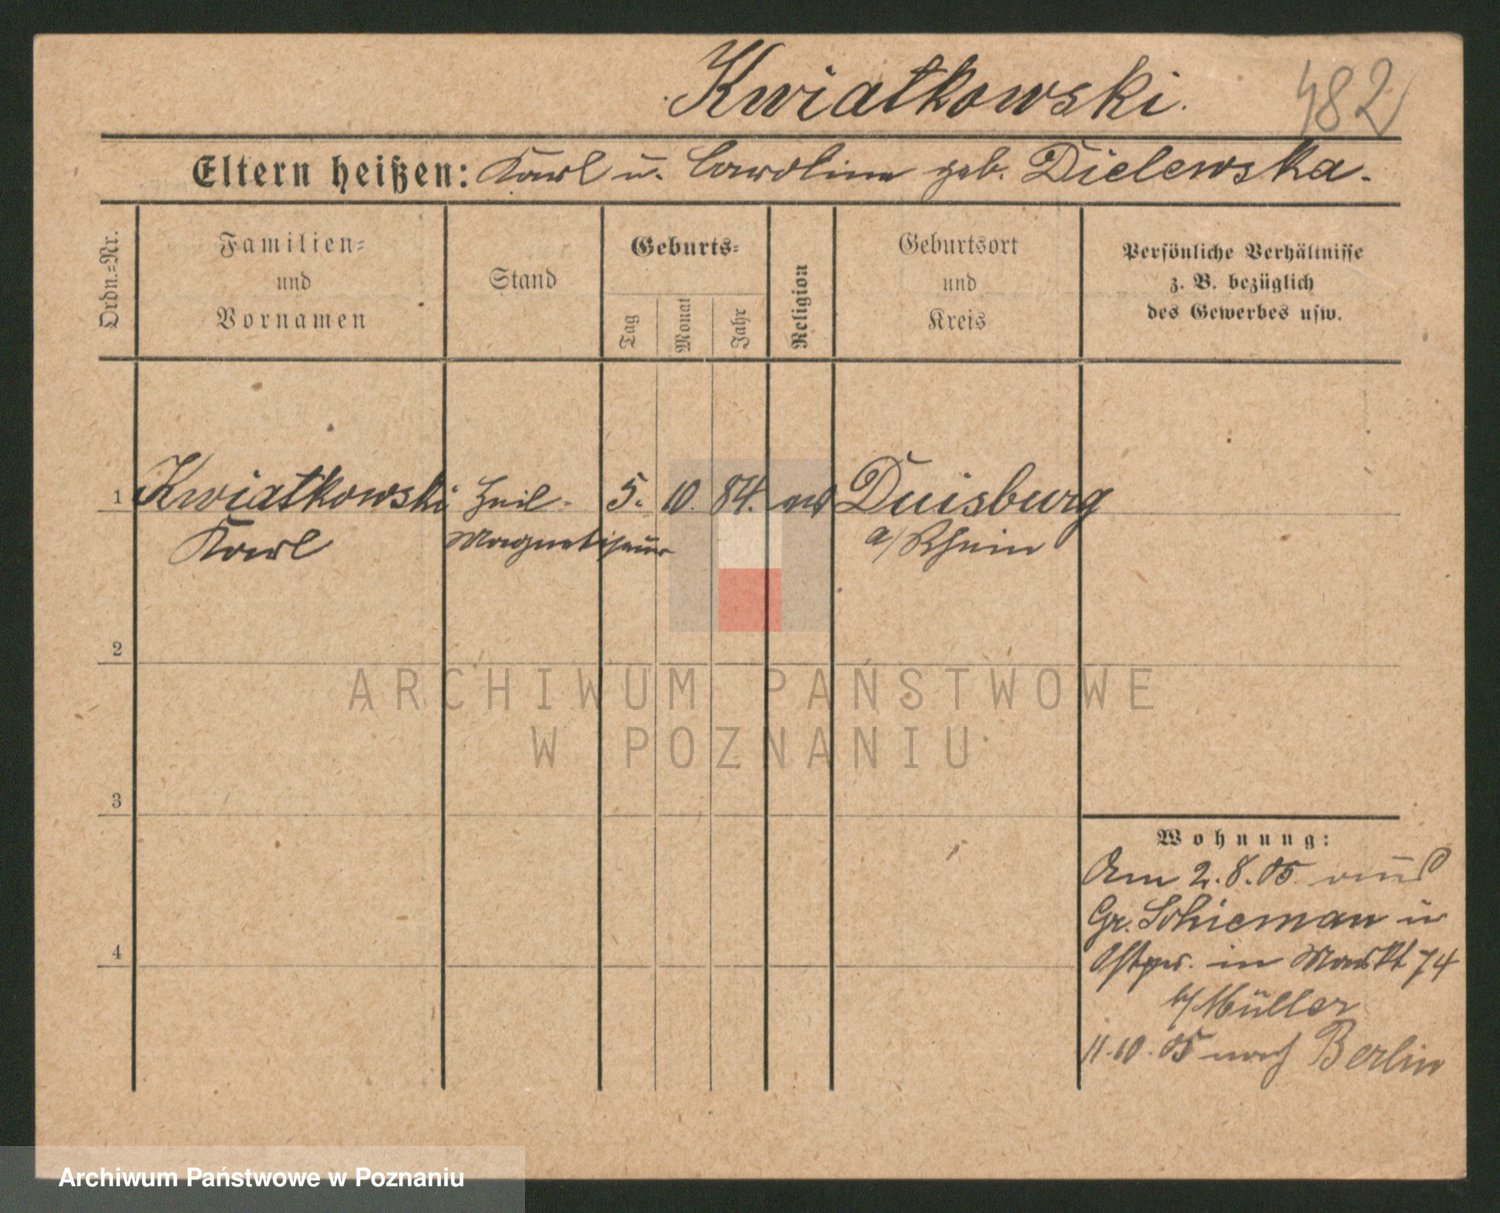 Kwiatkowski.
482
Eltern heißen: Karl u. Caroline geb. Dielewska.
Ordn.=Nr.
Familien=
und
Vornamen
Stand
Geburts=
Tag
Monat
Jahr
Religion
Geburtsort
und
Kreis
Persönliche Verhältnisse
z. B. bezüglich
des Gewerbes usw.
1 Kwiatkowski Heil- 5. 10. 84. Duisburg
Karl Magnetiseur a/Rhein
2
3
4
Wohnung:
Am 2.8.05 aus
Gr. Schieman in
Ostpr. in Markt 74
b/Müller
11.10.05 nach Berlin
ARCHIWUM PAŃSTWOWE
W POZNANIU
Archiwum Państwowe w Poznaniu